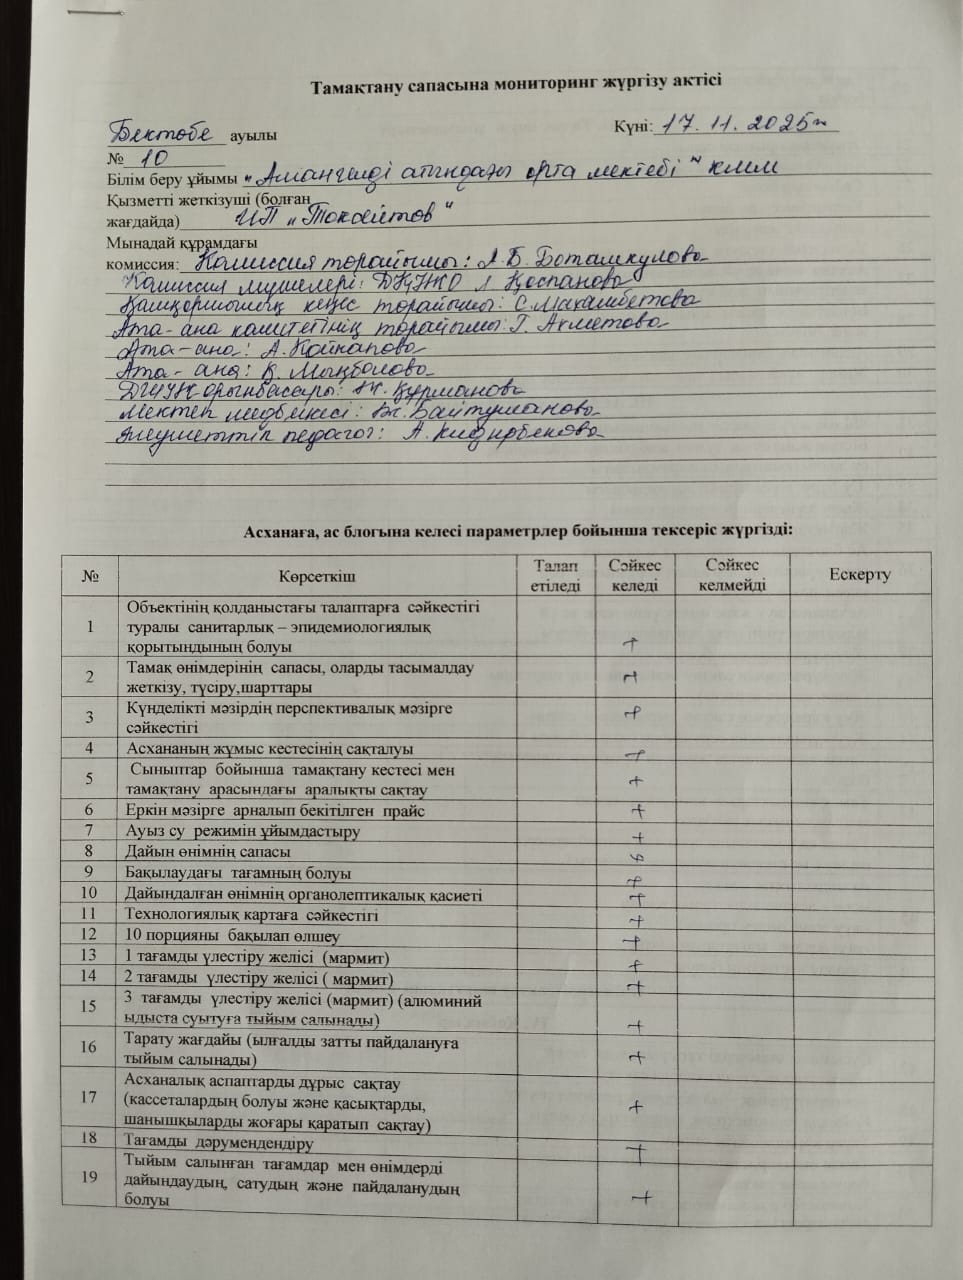 Тамақтану сапасына мониторинг жүргізу актісі
Бектөбе ауылы Күні: 17. 11. 2025ж
№ 10
Білім беру ұйымы "Амангелді атындағы орта мектебі" КММ
Қызметті жеткізуші (болған
жағдайда) ИП "Токсейтов"
Мынадай құрамдағы
комиссия: Комиссия торайымы: А.Б. Боташкулова
Комиссия мүшелері: ДҚЖО Л Қоспанова
Қамқоршылық кеңес торайымы: С.Махамбетова
Ата-ана комитетінің торайымы: Г. Ахметова
Ата-ана: А.
Ата-ана: К. Мыңболова
орынбасары: Ж. Құрманова
Мектеп медбикесі: Ж. Байтуманова
Әлеуметтік педагог: А.
Асханаға, ас блогына келесі параметрлер бойынша тексеріс жүргізді:
№ Көрсеткіш Талап етіледі Сәйкес келеді Сәйкес келмейді Ескерту
Объектінің қолданыстағы талаптарға сәйкестігі
1 туралы санитарлық – эпидемиологиялық
қорытындының болуы +
2 Тамақ өнімдерінің сапасы, оларды тасымалдау +
жеткізу, түсіру,шарттары
3 Күнделікті мәзірдің перспективалық мәзірге +
сәйкестігі
4 Асхананың жұмыс кестесінің сақталуы +
5 Сыныптар бойынша тамақтану кестесі мен +
тамақтану арасындағы аралықты сақтау
6 Еркін мәзірге арналып бекітілген прайс +
7 Ауыз су режимін ұйымдастыру +
8 Дайын өнімнің сапасы +
9 Бақылаудағы тағамның болуы +
10 Дайындалған өнімнің органолептикалық қасиеті +
11 Технологиялық картаға сәйкестігі +
12 10 порцияны бақылап өлшеу +
13 1 тағамды үлестіру желісі (мармит) +
14 2 тағамды үлестіру желісі ( мармит) +
15 3 тағамды үлестіру желісі (мармит) (алюминий
ыдыста суытуға тыйым салынады) +
16 Тарату жағдайы (ылғалды затты пайдалануға +
тыйым салынады)
Асханалық аспаптарды дұрыс сақтау
17 (кассеталардың болуы және қасықтарды, +
шанышқыларды жоғары қаратып сақтау)
18 Тағамды дәрумендендіру +
Тыйым салынған тағамдар мен өнімдерді
19 дайындаудың, сатудың және пайдаланудың +
болуы